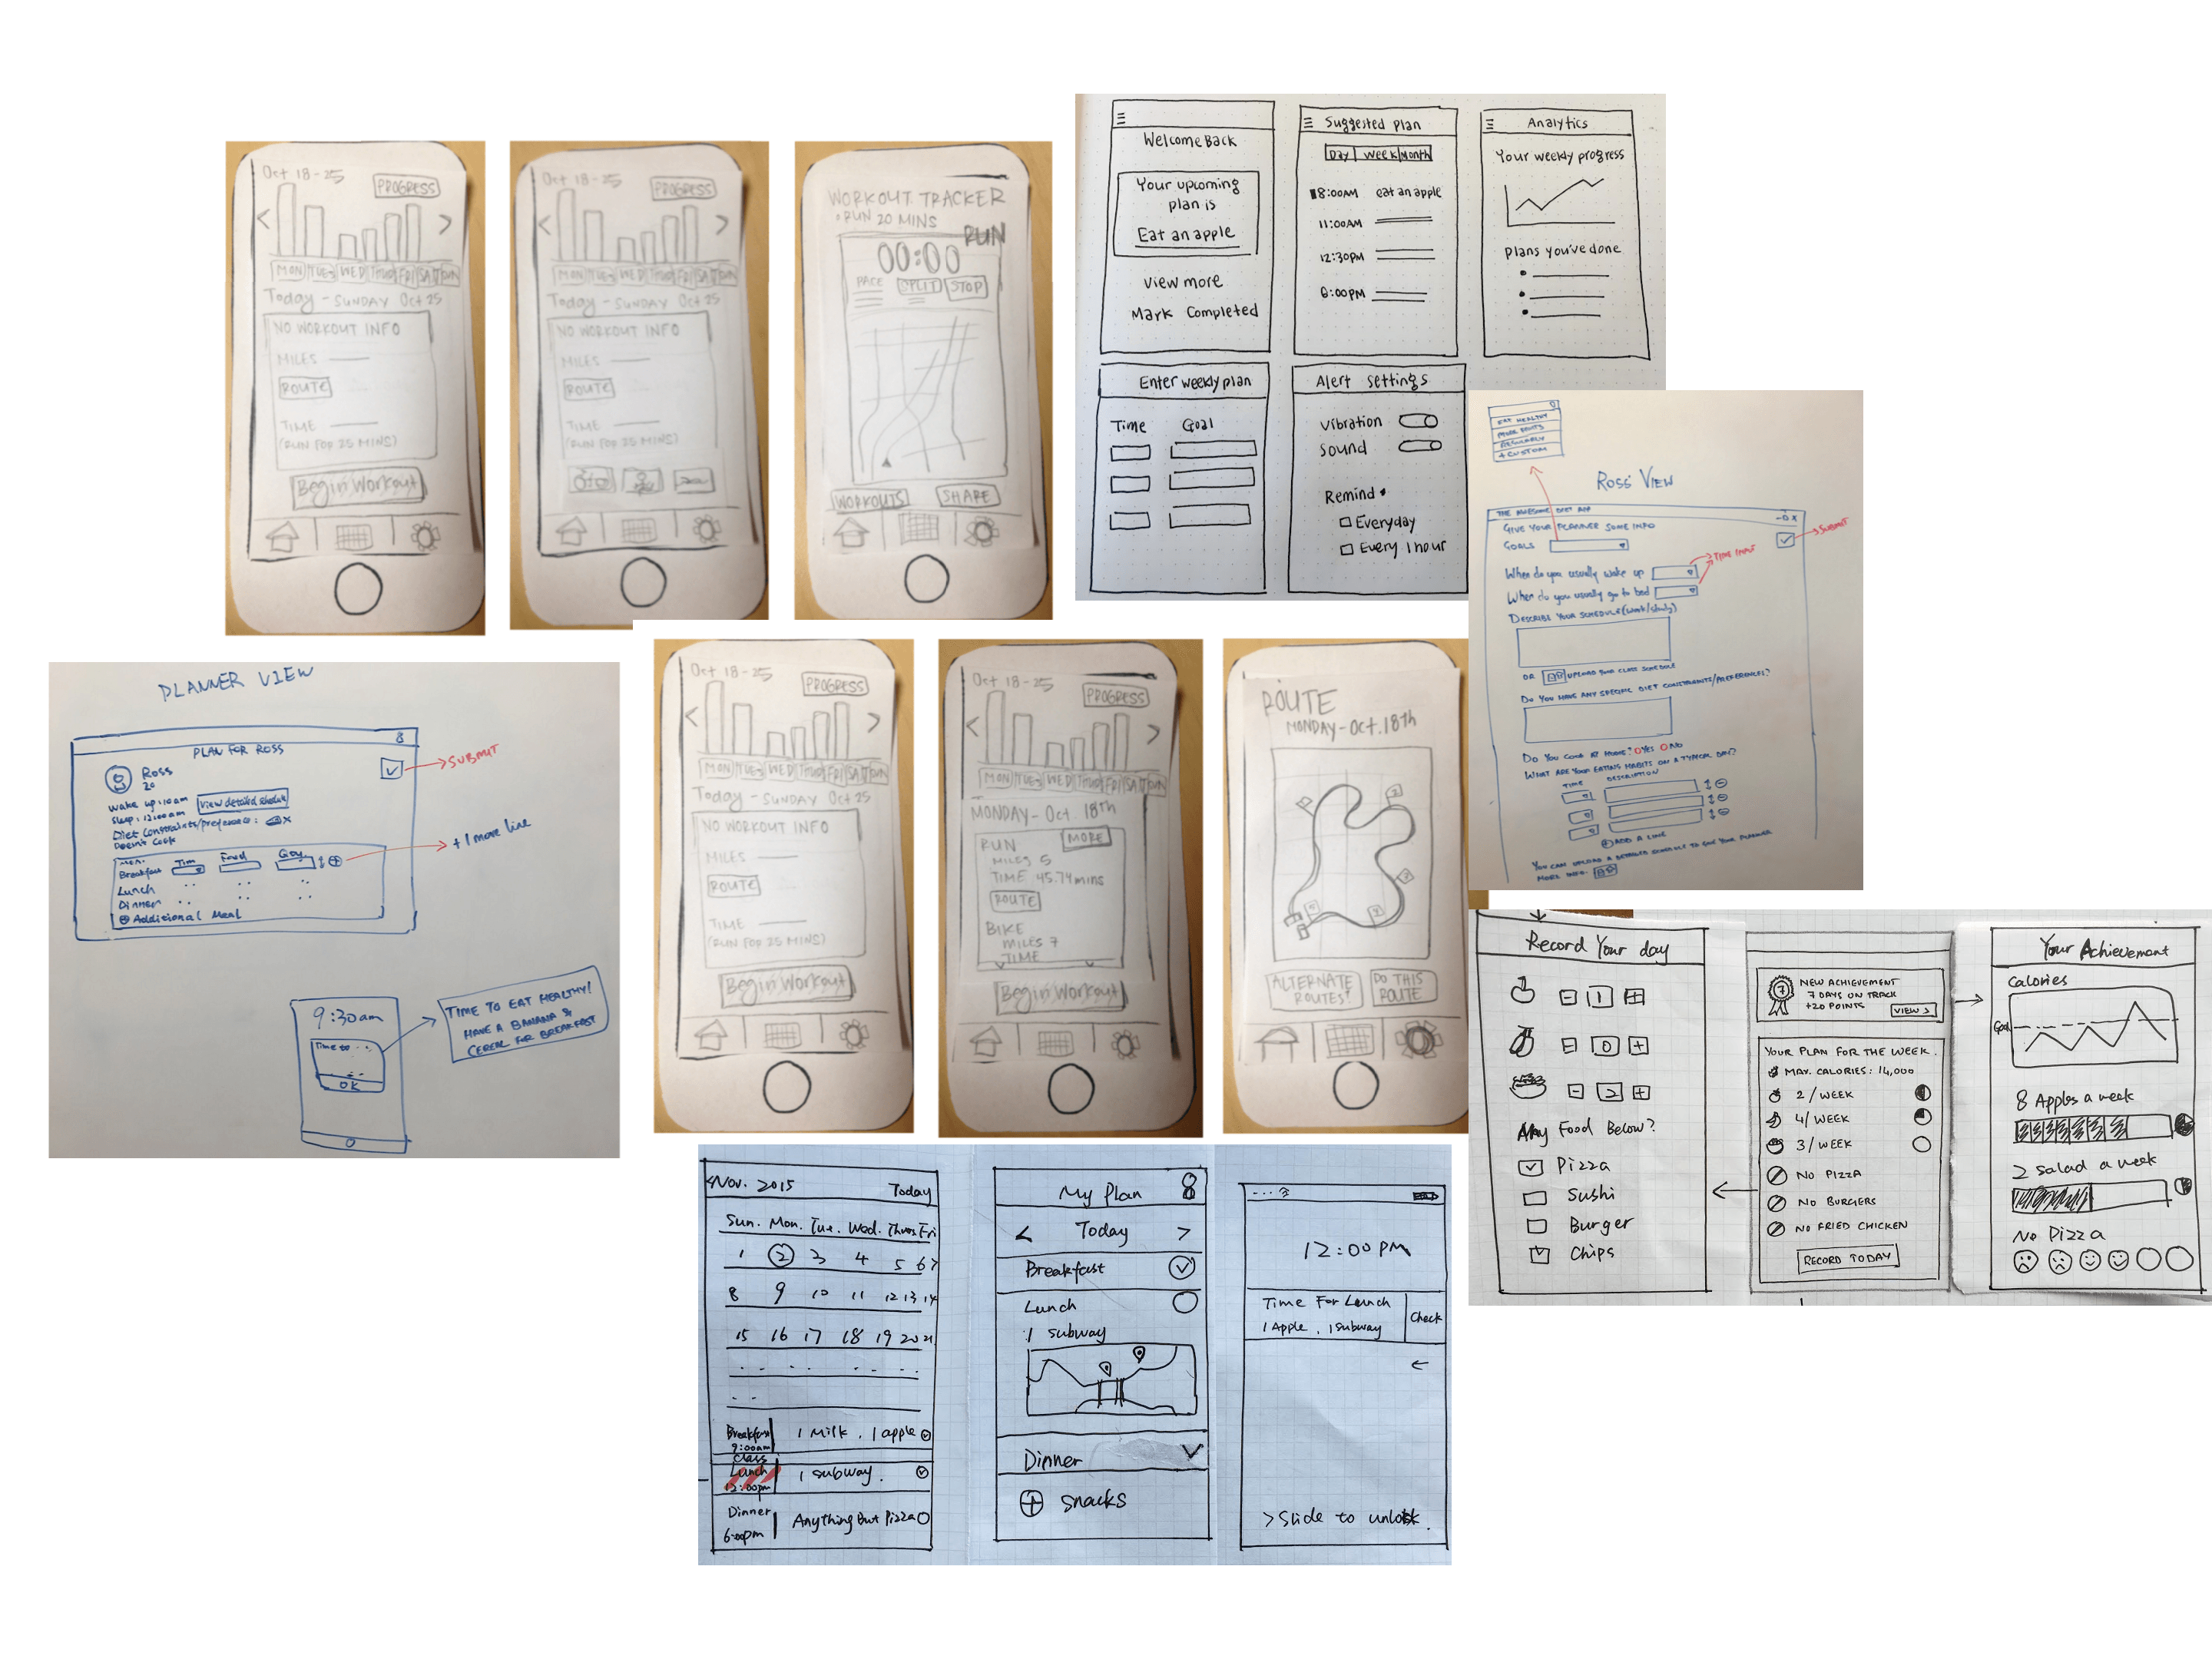 Oct 18-25
PROGRESS
< >
MON TUES WED THUR FRI SAT SUN
Today - SUNDAY Oct 25
NO WORKOUT INFO
MILES
ROUTE
TIME
(RUN FOR 25 MINS)
Begin Workout
Oct 18-25
PROGRESS
< >
MON TUES WED THUR FRI SAT SUN
Today - SUNDAY Oct 25
NO WORKOUT INFO
MILES
ROUTE
TIME
(RUN FOR 25 MINS)
WORKOUT TRACKER
• RUN 20 MINS
RUN
00:00
PACE SPLIT STOP
WORKOUTS SHARE
Welcome Back
Your upcoming
plan is
Eat an apple
View more
Mark Completed
Suggested plan
Day Week Month
8:00AM eat an apple
11:00AM
12:30PM
6:00PM
Analytics
Your weekly progress
Plans you've done
Enter weekly plan
Time Goal
Alert settings
Vibration
Sound
Remind
Everyday
Every 1 hour
EAT HEALTHY
MORE FRUITS
REGULARLY
+ CUSTOM
ROSS' VIEW
THE AWESOME DIET APP
GIVE YOUR PLANNER SOME INFO
GOALS
SUBMIT
TIME INPUT
When do you usually wake up
When do you usually go to bed
DESCRIBE YOUR SCHEDULE (work/study)
OR UPLOAD YOUR CLASS SCHEDULE
DO YOU HAVE ANY SPECIAL DIET CONSTRAINTS/PREFERENCES?
DO YOU COOK AT HOME? YES NO
WHAT ARE YOUR EATING HABITS ON A TYPICAL DAY?
TIME DESCRIPTION
+ ADD A LINE
YOU CAN UPLOAD A DETAILED SCHEDULE TO GIVE YOUR PLANNER
MORE INFO.
PLANNER VIEW
PLAN FOR ROSS
SUBMIT
Ross
20
wake up: 10am View detailed schedule
sleep: 12:00am
Diet constraints/preference:
Doesn't cook
+ 1 more line
Time Food
Breakfast
Lunch
Dinner
+ Additional Meal
9:30am
Time to
OK
TIME TO EAT HEALTHY!
HAVE A BANANA &
CEREAL FOR BREAKFAST
Oct 18-25
PROGRESS
< >
MON TUES WED THUR FRI SAT SUN
Today - SUNDAY Oct 25
NO WORKOUT INFO
MILES
ROUTE
TIME
(RUN FOR 25 MINS)
Begin Workout
Oct 18-25
PROGRESS
< >
MON TUES WED THUR FRI SAT SUN
MONDAY - Oct. 18th
RUN MORE
MILES 5
TIME 45.74 mins
ROUTE
BIKE
MILES 7
TIME
Begin Workout
ROUTE
MONDAY - Oct. 18th
ALTERNATE
ROUTES!
DO THIS
ROUTE
Record Your day
- 1 +
- 0 +
- 2 +
Any Food Below?
Pizza
Sushi
Burger
Chips
7
NEW ACHIEVEMENT
7 DAYS ON TRACK
+20 POINTS
VIEW >
YOUR PLAN FOR THE WEEK.
MAX. CALORIES: 14,000
2 / WEEK
4 / WEEK
3 / WEEK
NO PIZZA
NO BURGERS
NO FRIED CHICKEN
RECORD TODAY
Your Achievement
Calories
Goal
8 Apples a week
2 Salad a week
No Pizza
Nov. 2015 Today
Sun. Mon. Tue. Wed. Thurs Fri
1 2 3 4 5 6 7
8 9 10 11 12 13 14
15 16 17 18 19 20 21
Breakfast
9:00am
1 Milk . 1 apple
Class
Lunch
12:00pm
1 subway.
Dinner
6:00pm
Anything But Pizza
My Plan
< Today >
Breakfast
Lunch
1 subway
Dinner
+ Snacks
12:00 PM
Time For Lunch
1 Apple . 1 subway
Check
> Slide to unlock.